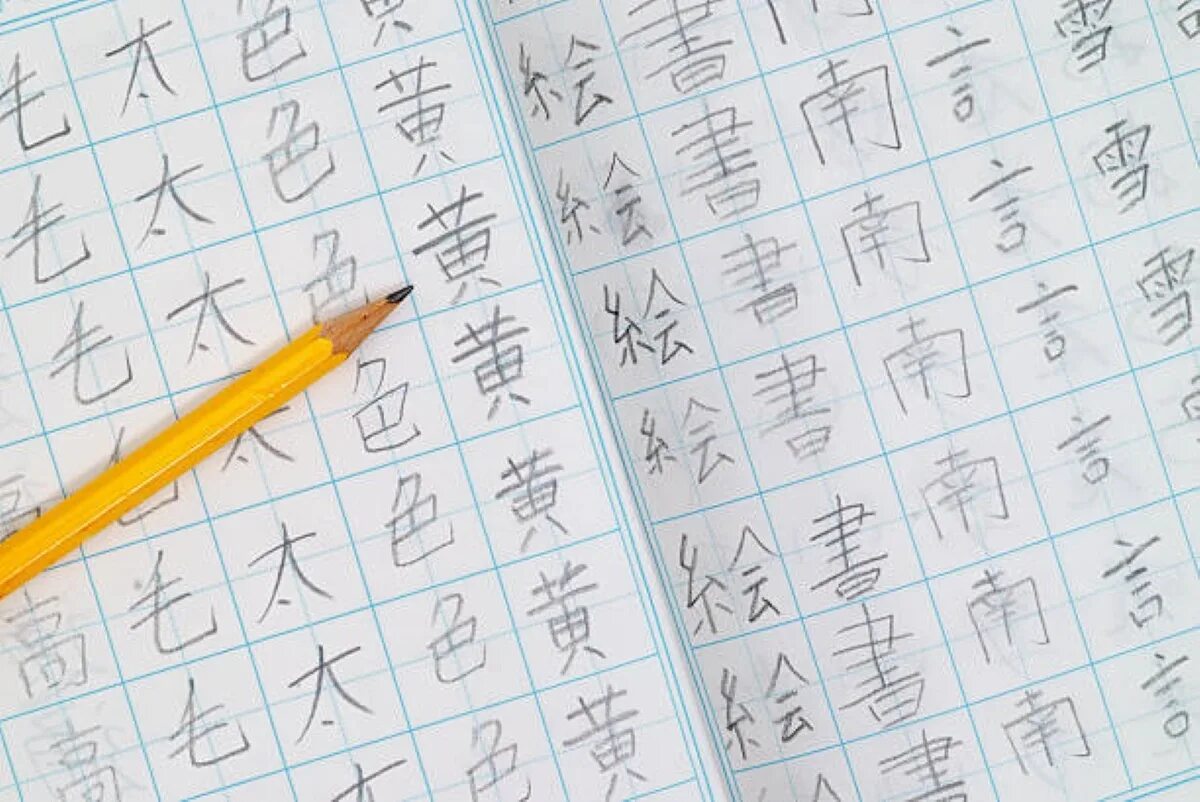 雪雪雪
言言言言言言
南南南南南南
書書書書書書書
絵絵絵絵絵絵
黄黄黄黄黄黄
色色色色色色色
太太太太太太
毛毛毛毛毛